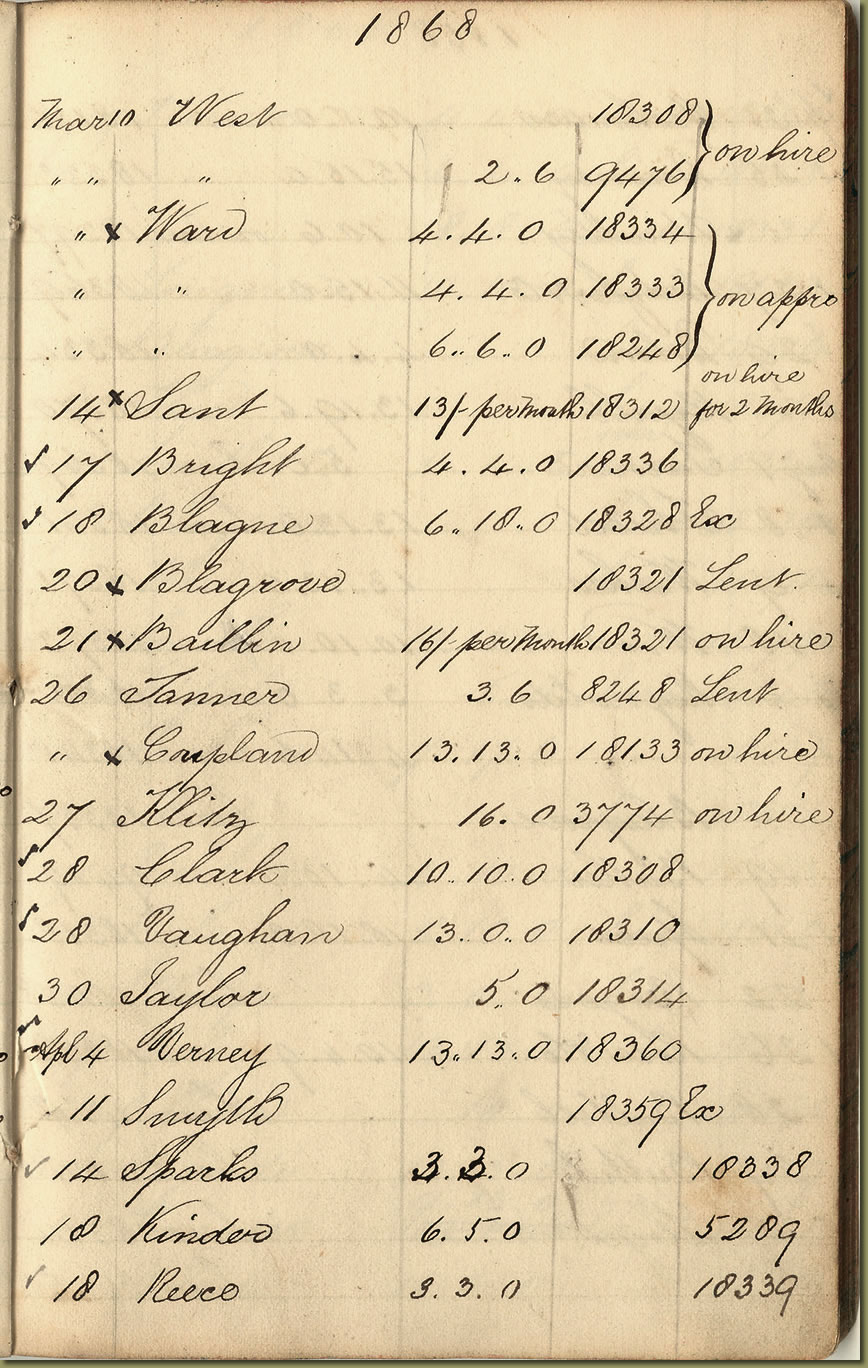 1868
Mar 10 West 18308 } on hire
" " " 2..6 9476
" x Ward 4.4.0 18334
" " 4.4.0 18333 } on appro
" " 6..6..0 18248
on hire
14 x Sant 13/- per Month 18312 for 2 Months
17 Bright 4.4.0 18336
18 Blagne 6..18..0 18328 Ex
20 x Blagrove 18321 Lent.
21 x Baillin 16/- per Month 18321 on hire
26 Tanner 3.6 8248 Lent
" x Coupland 13.13.0 18133 on hire
27 Klitz 16.0 3774 on hire
28 Clark 10..10.0 18308
28 Vaughan 13.0..0 18310
30 Taylor 5.0 18314
Apl 4 Verney 13..13..0 18360
11 Smyth 18359 Ex
14 Sparks 3.3.0 18338
18 Kinder 6.5.0 5289
18 Reece 3.3.0 18339